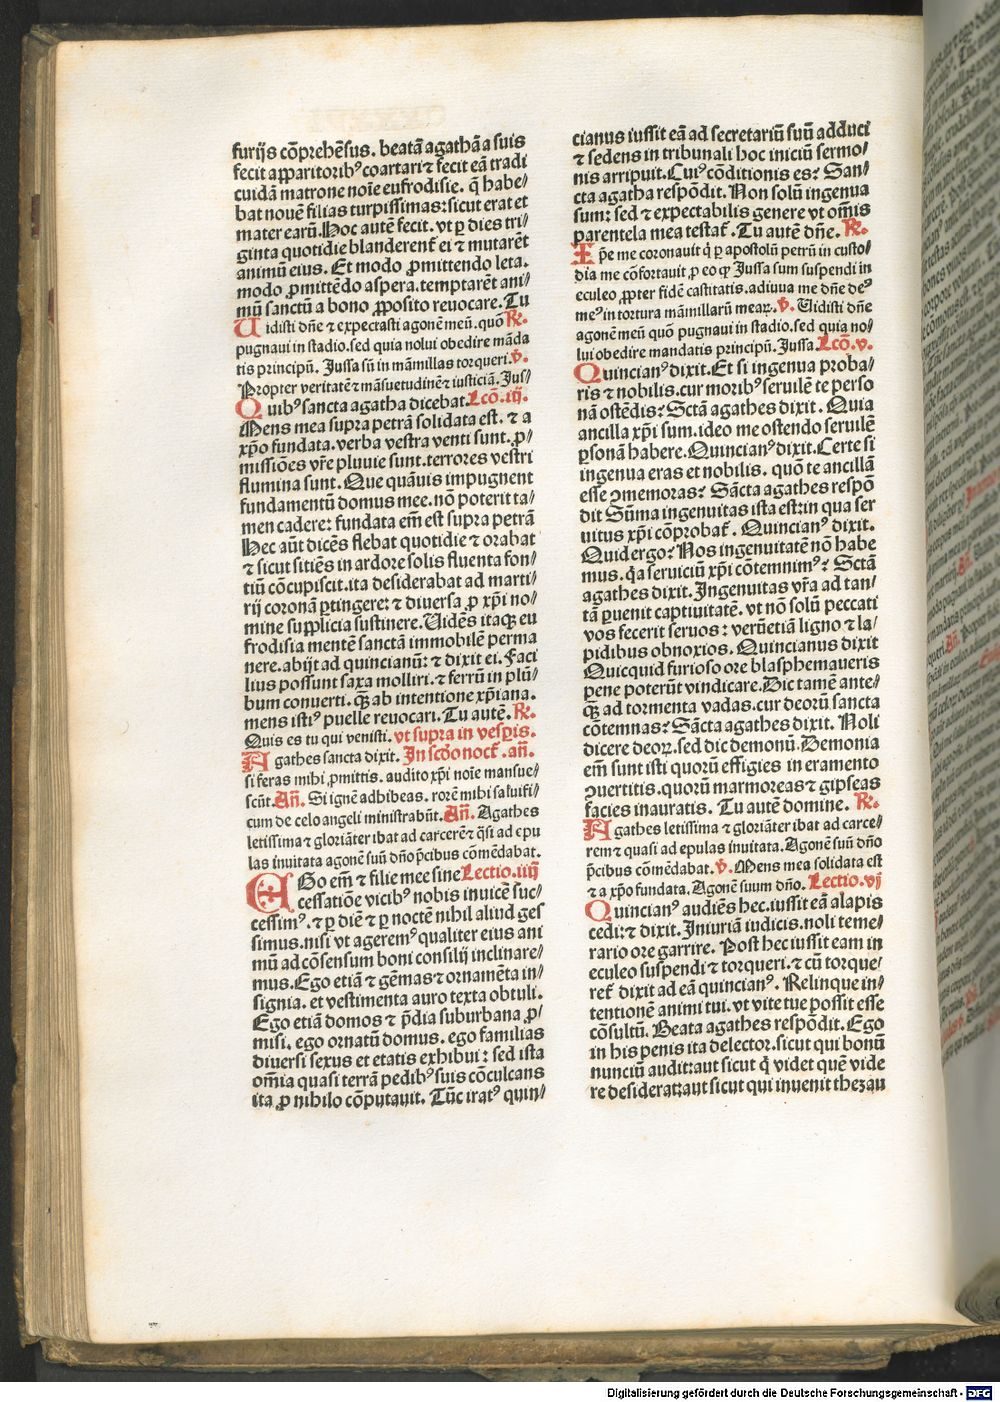 furijs cōprehēsus. beatā agathā a suis
fecit apparitoribꝰ coartari ⁊ fecit eā tradi
cuidā matrone noīe eufrodisie. q̄ habe⸗
bat nouē filias turpissimas: sicut erat et
mater earū. Hoc autē fecit. vt ꝑ dies tri⸗
ginta quotidie blanderent̄ ei ⁊ mutarēt
animū eius. Et modo ꝓmittendo leta.
modo ꝓmittēdo aspera. temptarēt ani⸗
mū sanctū a bono ꝓposito reuocare. Tu
Uidisti dn̄e ⁊ expectasti agonē meū. quō R̄.
pugnaui in stadio. sed quia nolui obedire māda
tis principū. Jussa sū in māmillas torqueri. v̄.
Propter veritatē ⁊ māsuetudinē ⁊ iusticiā. Jus⸗
Quibꝰ sancta agatha dicebat. Lcō. iij.
Mens mea supra petrā solidata est. ⁊ a
xp̄o fundata. verba vestra venti sunt. ꝓ⸗
missiōes vr̄e pluuie sunt. terrores vestri
flumina sunt. Que quāuis impugnent
fundamentū domus mee. nō poterit ta⸗
men cadere: fundata em̄ est supra petrā
Hec aūt dicēs flebat quotidie ⁊ orabat
⁊ sicut sitiēs in ardore solis fluenta fon⸗
tiū cōcupiscit. ita desiderabat ad marti⸗
rij coronā ꝑtingere: ⁊ diuersa ꝓ xp̄i no⸗
mine supplicia sustinere. Uidēs itaqꝫ eu
frodisia mentē sanctā immobilē perma
nere. abijt ad quincianū: ⁊ dixit ei. Faci
lius possunt saxa molliri. ⁊ ferrū in plū⸗
bum conuerti. qꝫ̄ ab intentione xp̄iana.
mens istiꝰ puelle reuocari. Tu autē. R̄.
Quis es tu qui venisti. vt supra in vesꝑis.
Agathes sancta dixit. In scd̄o noct̄. an̄.
si feras mihi ꝓmittis. audito xp̄i noīe mansue⸗
scūt. An̄. Si ignē adhibeas. rorē mihi saluifi⸗
cum de celo angeli ministrabūt. An̄. Agathes
letissima ⁊ gloriāter ibat ad carcerē ⁊ q̄si ad epu
las inuitata agonē suū dn̄o p̄cibus cōmēdabat.
EGo em̄ ⁊ filie mee sine Lectio. iiij
cessatiōe vicibꝰ nobis inuicē suc⸗
cessimꝰ. ⁊ ꝑ diē ⁊ ꝑ noctē nihil aliud ges
simus. nisi vt ageremꝰ qualiter eius ani
mū ad cōsensum boni consilij inclinare⸗
mus. Ego etiā ⁊ gēmas ⁊ ornamēta in⸗
signia. et vestimenta auro texta obtuli.
Ego etiā domos ⁊ p̄dia suburbana ꝓ⸗
misi. ego ornatū domus. ego familias
diuersi sexus et etatis exhibui: sed ista
om̄ia quasi terrā pedibꝰ suis cōculcans
ita ꝓ nihilo cōputauit. Tūc iratꝰ quin⸗
cianus iussit eā ad secretariū suū adduci
⁊ sedens in tribunali hoc iniciū sermo⸗
nis arripuit. Cuiꝰ cōditionis es? San⸗
cta agatha respōdit. Non solū ingenua
sum: sed ⁊ expectabilis genere vt om̄is
parentela mea testat̄. Tu autē dn̄e. R̄.
Ip̄e me coronauit q̄ ꝑ apostolū petrū in custo⸗
dia me cōfortauit. ꝓ eo qꝫ Jussa sum suspendi in
eculeo ꝓpter fidē castitatis. adiuua me dn̄e deꝰ
meꝰ in tortura māmillarū meaꝝ. v̄. Uidisti dn̄e
agonē meū quō pugnaui in stadio. sed quia no⸗
lui obedire mandatis principū. Jussa. Lcō. v.
Quincianꝰ dixit. Et si ingenua proba⸗
ris ⁊ nobilis. cur moribꝰ seruilē te perso
nā ostēdis? Sctā agathes dixit. Quia
ancilla xp̄i sum. ideo me ostendo seruilē
ꝑsonā habere. Quincianꝰ dixit. Certe si
ingenua eras et nobilis. quō te ancillā
esse ꝯmemoras? Sācta agathes respō
dit Sūma ingenuitas ista est: in qua ser
uitus xp̄i cōprobat̄. Quincianꝰ dixit.
Quid ergo? Nos ingenuitatē nō habe
mus. q̄a seruiciū xp̄i cōtemnimꝰ? Sctā
agathes dixit. Ingenuitas vr̄a ad tan⸗
tā ꝑuenit captiuitatē. vt nō solū peccati
vos fecerit seruos: verūetiā ligno ⁊ la⸗
pidibus obnoxios. Quincianus dixit
Quicquid furioso ore blasphemaueris
pene poterūt vindicare. Dic tamē ante⸗
qꝫ̄ ad tormenta vadas. cur deorū sancta
cōtemnas? Sācta agathes dixit. Noli
dicere deoꝝ. sed dic demonū. Demonia
em̄ sunt isti quorū effigies in eramento
ꝯuertitis. quorū marmoreas ⁊ gipseas
facies inauratis. Tu autē domine. R̄.
Agathes letissima ⁊ gloriāter ibat ad carce⸗
rem ⁊ quasi ad epulas inuitata. Agonē suū dn̄o
p̄cibus cōmēdabat. v̄. Mens mea solidata est
⁊ a xp̄o fundata. Agonē suum dn̄o. Lectio. vj
Quincianꝰ audiēs hec. iussit eā alapis
cedi: ⁊ dixit. Iniuriā iudicis. noli teme⸗
rario ore garrire. Post hec iussit eam in
eculeo suspendi ⁊ torqueri. ⁊ cū torque⸗
ret̄ dixit ad eā quincianꝰ. Relinque in⸗
tentionē animi tui. vt vite tue possit esse
cōsultū. Beata agathes respōdit. Ego
in his penis ita delector. sicut qui bonū
nunciū audit: aut sicut q̄ videt quē vide
re desiderat: aut sicut qui inuenit thezau
Digitalisierung gefördert durch die Deutsche Forschungsgemeinschaft - DFG